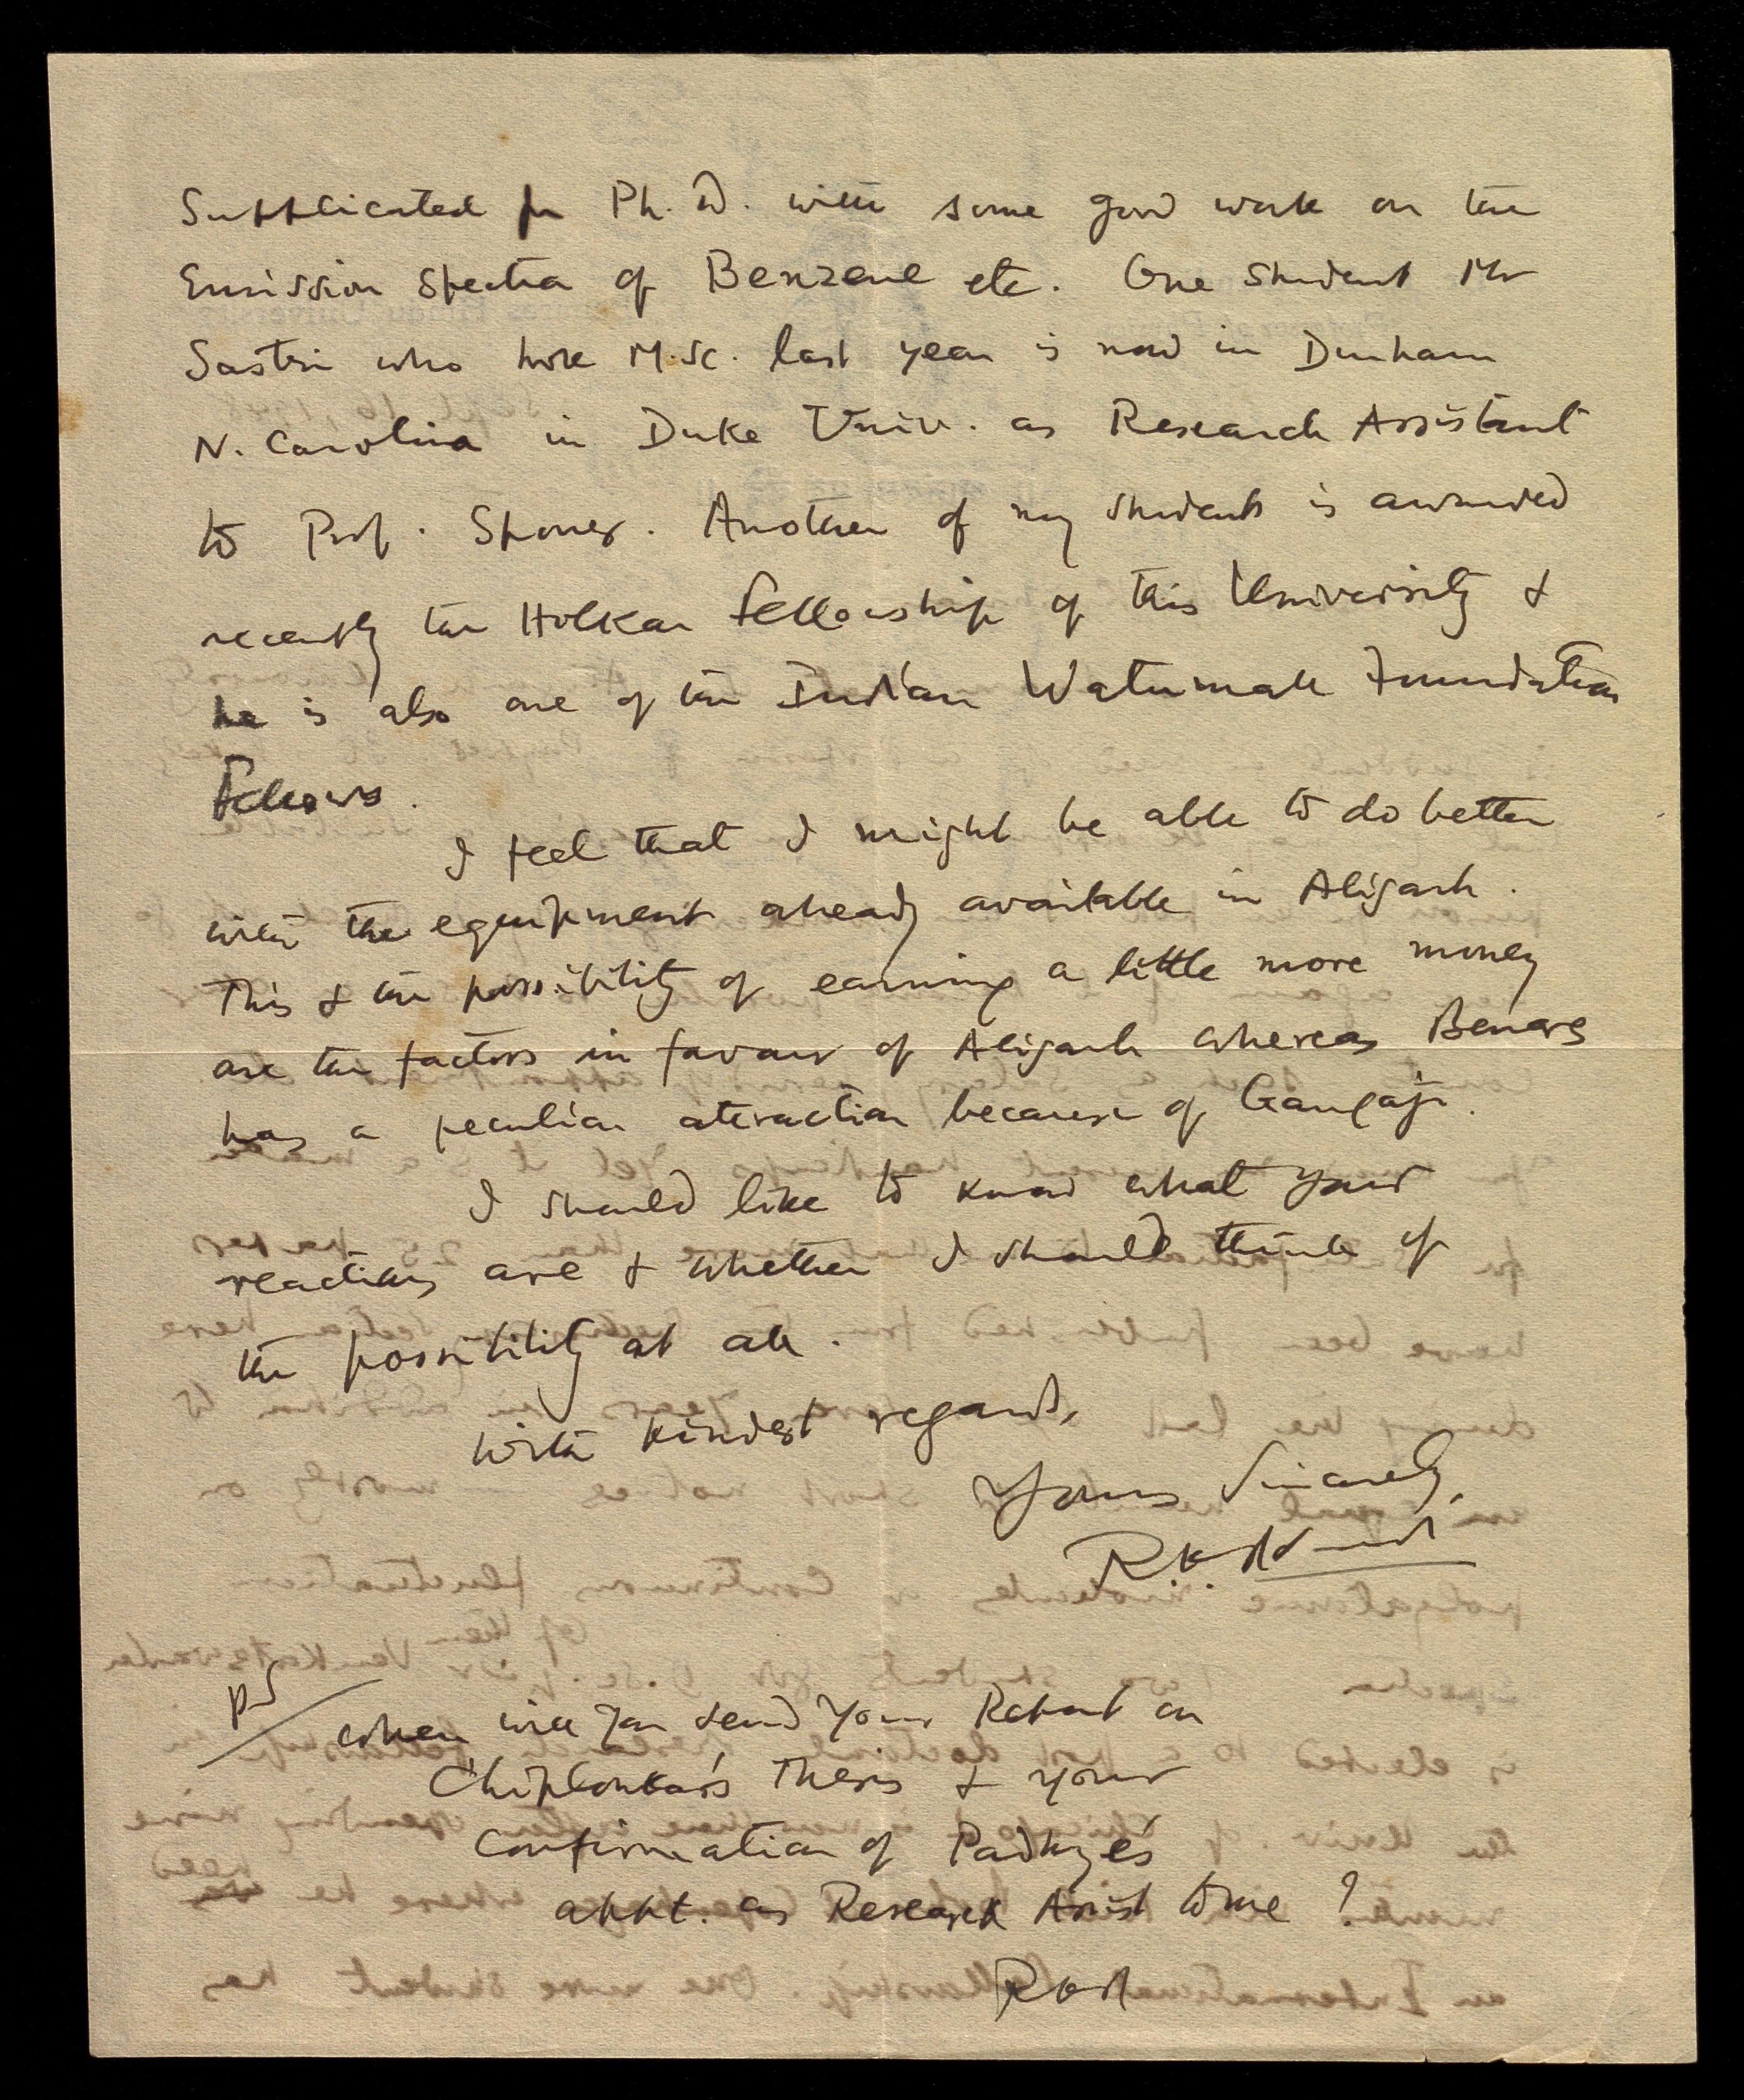 Supplicated for Ph.D. with some good work on the
Emission Spectra of Benzene etc. One student Mr
Sastri who took M.Sc. last year is now in Durham
N. Carolina in Duke Univ. as Research Assistant
to Prof. Sponer. Another of my students is awarded
recently the Holkar Fellowship of this University &
he is also one of the Indian Watumall Foundation
Fellows.
I feel that I might be able to do better
with the equipment already available in Aligarh.
This & the possibility of earning a little more money
are the factors in favour of Aligarh whereas Benares
has a peculiar attraction because of Gangaji.
I should like to know what your
reactions are & whether I should think of
the possibility at all.
With kindest regards,
Yours Sincerely,
R.K. Asundi
PS
When will you send your Report on
Chiplonkar's Thesis & your
Confirmation of Padhye's
appt. as Research Assist to me?
RKA